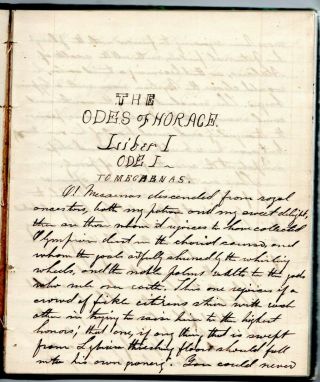 THE
ODES of HORACE.
Liber I
ODE I
TO MECAENAS.
O! Mecaenas descended from royal
ancestors, both my patron and my sweet delight,
there are those whom it rejoices to have collected
Olympian dust in the chariot course, and
whom the goals artfully shunned by the whirling
wheels, and the noble palms exalts to the gods
who rule our earth. This one rejoices if a
crowd of fickle citizens strive with each
other in trying to raise him to the highest
honors; that one, if any thing that is swept
from Lybian threshing floors should fall
into his own granary. You could never